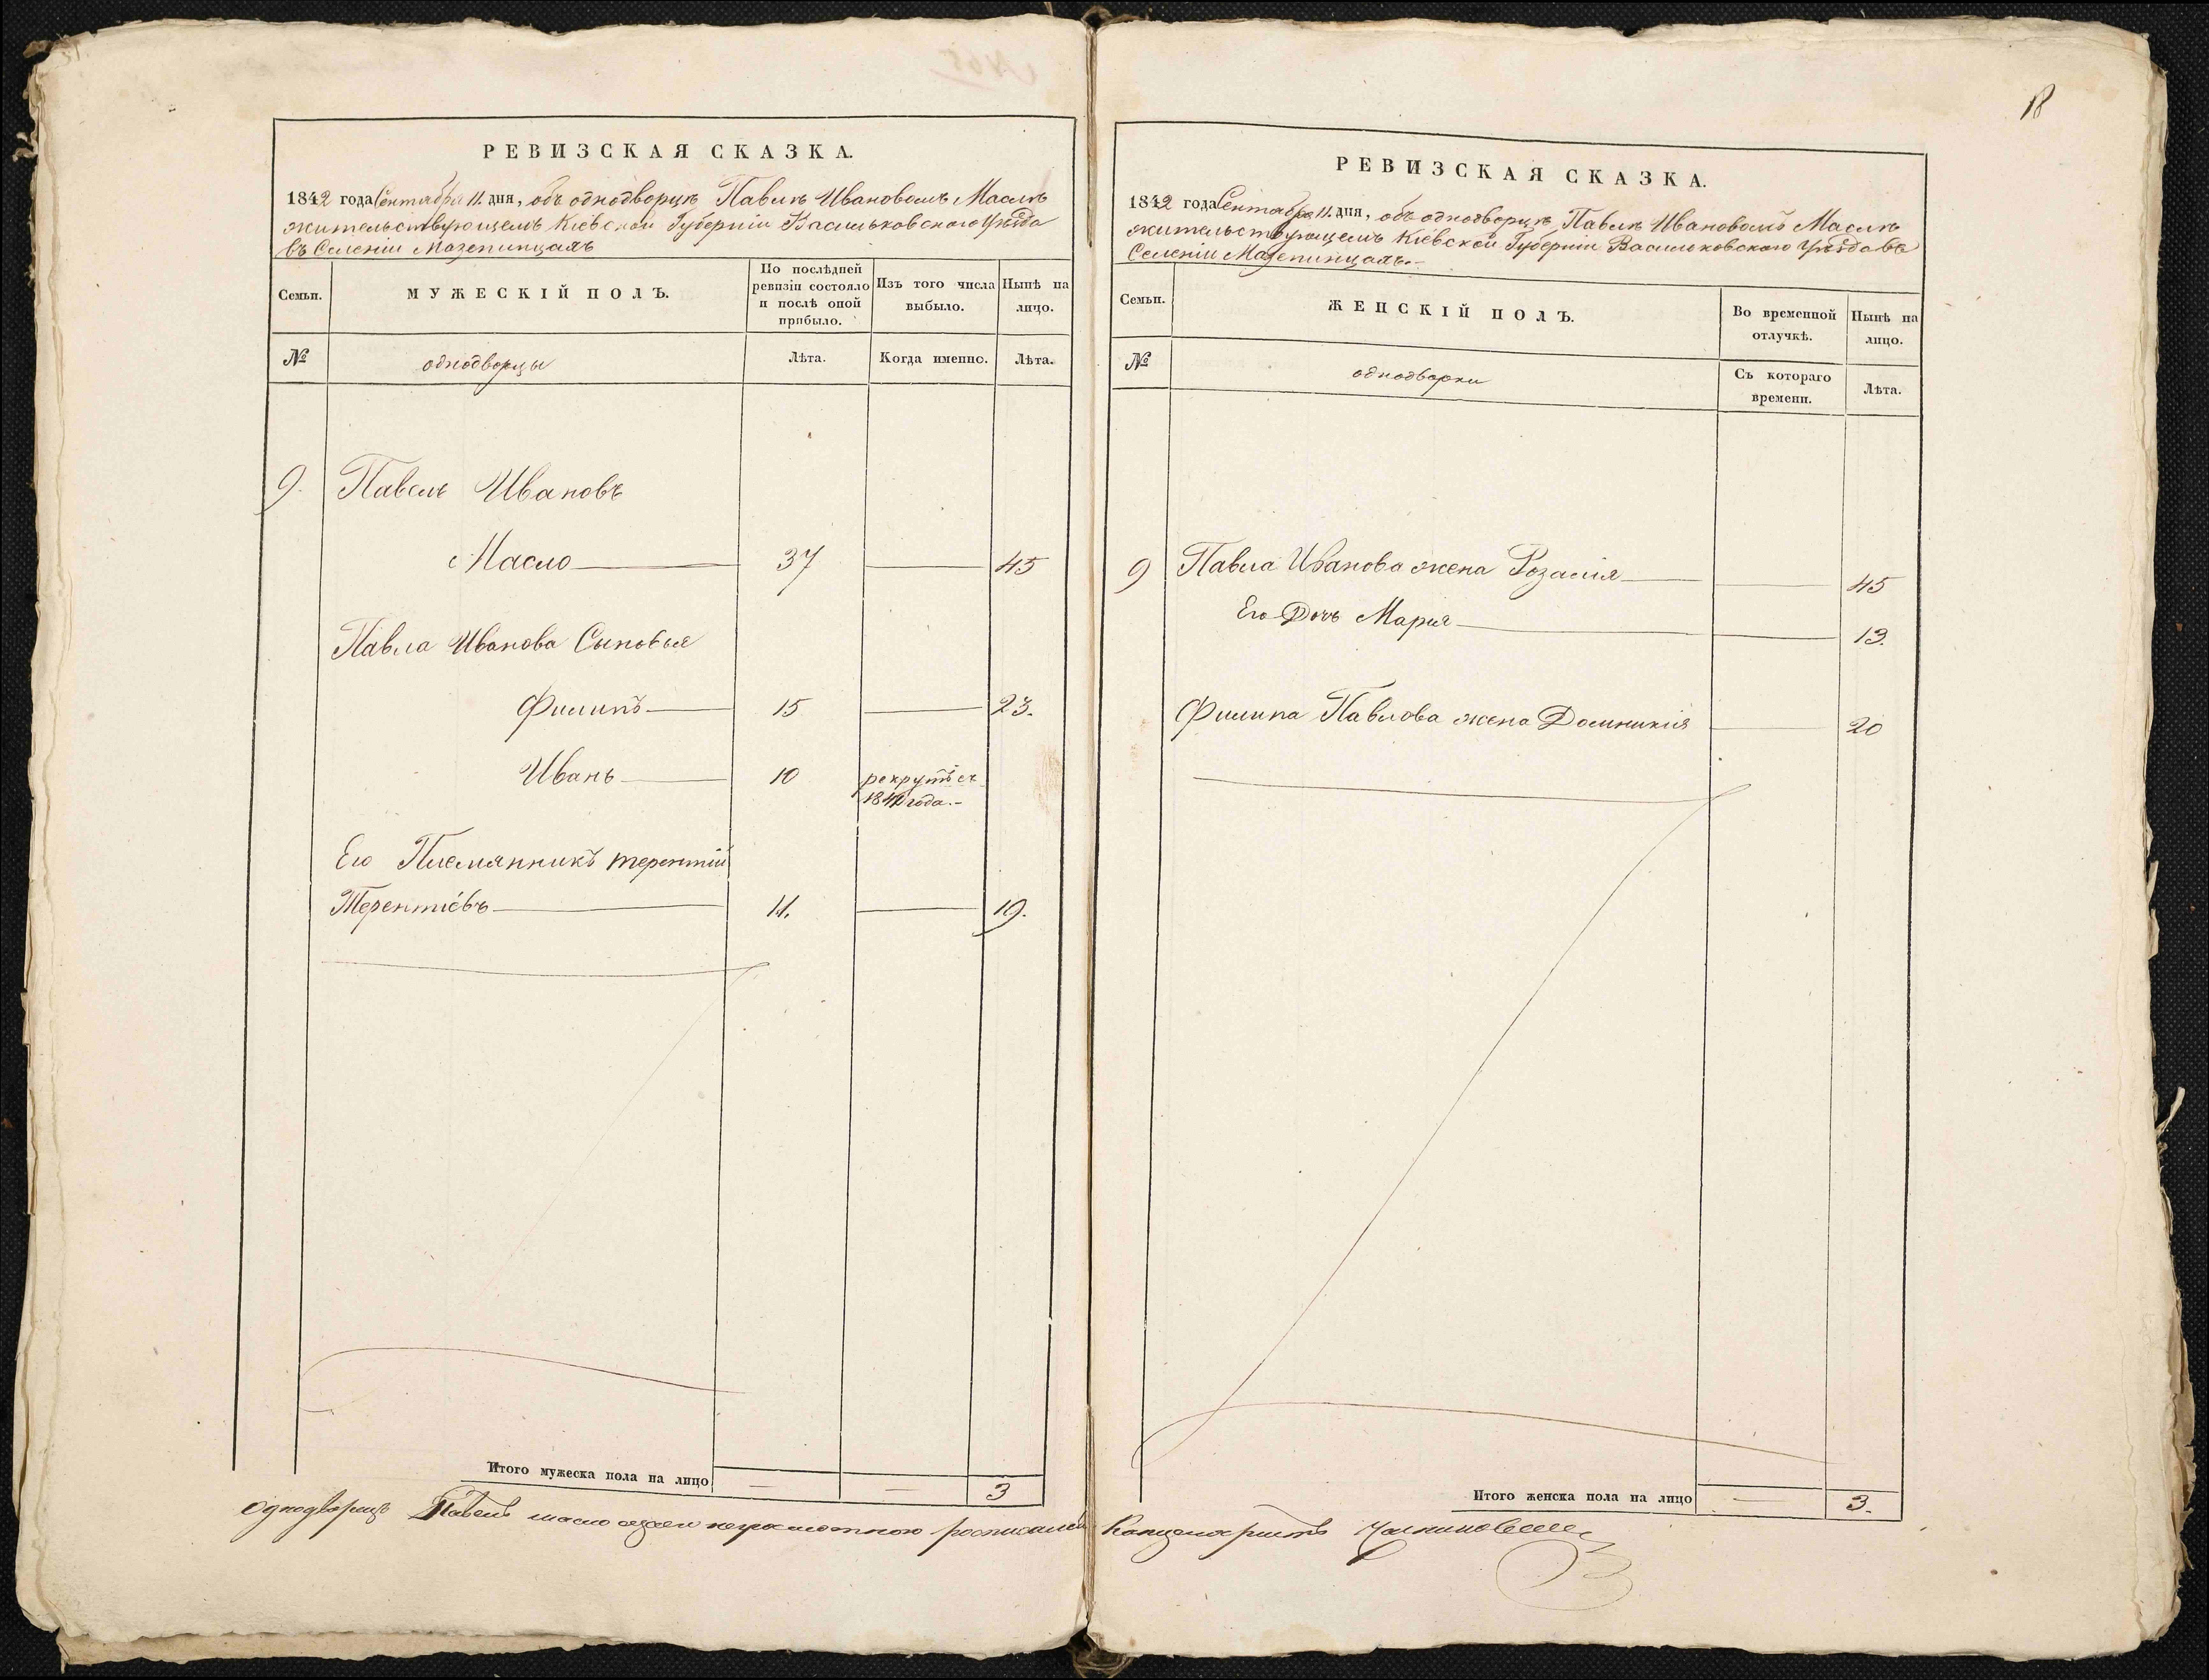 РЕВИЗСКАЯ СКАЗКА.
1842 года Сентября 11. дня, объ однодворцѣ Павлѣ Ивановомъ Маслѣ
жительствующемъ Кіевской Губерніи Васильковскаго Уѣзда
въ Селеніи Мазепинцахъ
Семьи.
МУЖЕСКІЙ ПОЛЪ.
По послѣдней
ревизіи состояло
и послѣ оной
прибыло.
Изъ того числа
выбыло.
Нынѣ на
лицо.
№
однодворцы
Лѣта.
Когда именно.
Лѣта.
9. Павелъ Ивановъ
Масло 37 45
Павла Иванова Сыновья
Филипъ 15 23.
Иванъ 10 рекрутѣ съ
184 года.-
Его Племянникъ терентій
Терентіевъ 11. 19.
Итого мужеска пола на лицо — — 3
Однодворецъ Павелъ масло неграмотною
18
РЕВИЗСКАЯ СКАЗКА.
1842 года Сентября 11. дня, объ однодворцѣ Павлѣ Ивановомъ Маслѣ
жительствующемъ Кіевской Губерніи Васильковскаго Уѣзда въ
Селеніи Мазепинцахъ.-
Семьи.
ЖЕНСКІЙ ПОЛЪ.
Во временной
отлучкѣ.
Нынѣ на
лицо.
№
однодворки
Съ котораго
времени.
Лѣта.
9 Павла Иванова жена Розалія 45
Его Дочь Марія 13.
Филипа Павлова жена Домникія 20
Итого женска пола на лицо — 3.
Канцеляристъ